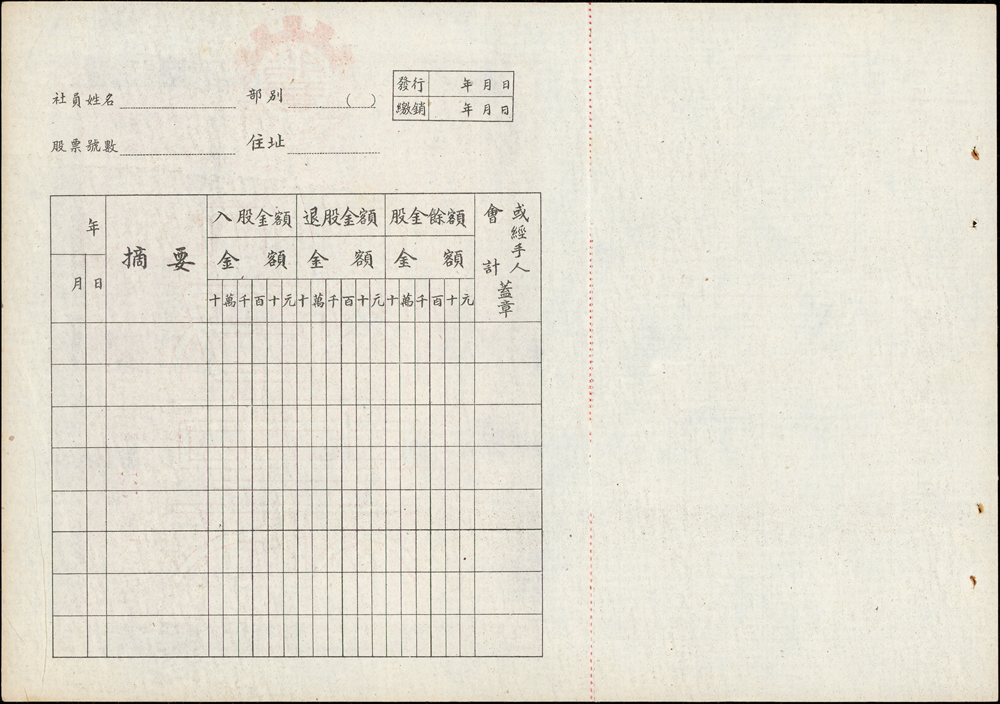 社員姓名 部別 ( )
發行 年月日
繳銷 年月日
股票號數 住址
年
月 日
摘要
入股金額 退股金額 股金餘額
金額 金額 金額
十萬千百十元 十萬千百十元 十萬千百十元
會計
或經手人
蓋章